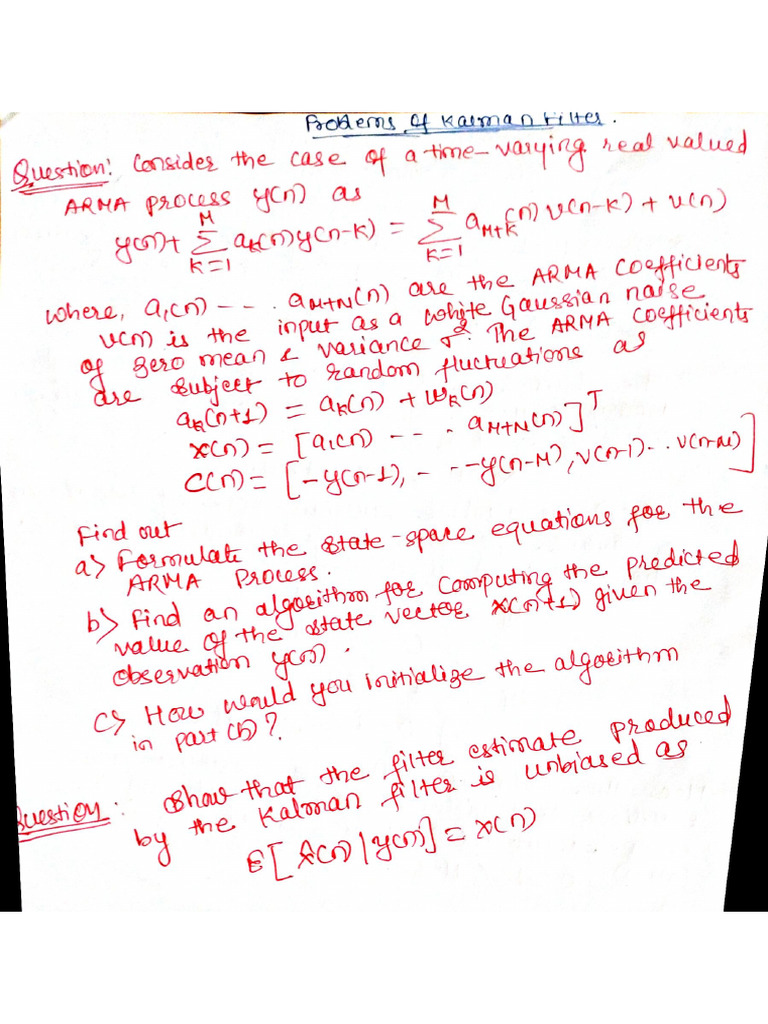 Problems of Kalman Filter.
Question: Consider the case of a time-varying real valued
ARMA process y(n) as
y(n) + M∑k=1 ak(n)y(n-k) = M∑k=1 aM+k(n) v(n-k) + v(n)
where, a1(n) --- . aM+N(n) are the ARMA coefficients
v(n) is the input as a white Gaussian noise
of zero mean & variance σ². The ARMA coefficients
are subject to random fluctuations as
ak(n+1) = ak(n) + wk(n)
x(n) = [a1(n) --- . aM+N(n)]T
C(n) = [-y(n-1), - --y(n-M), v(n-1)-.. v(n-M)]
Find out
a) Formulate the state-space equations for the
ARMA Process.
b) Find an algorithm for computing the predicted
value of the state vector x(n+1) given the
observation y(n).
c) How would you initialize the algorithm
in part (b)?
Question: Show that the filter estimate produced
by the Kalman filter is unbiased as
E[x̂(n)|y(n)] = x(n)